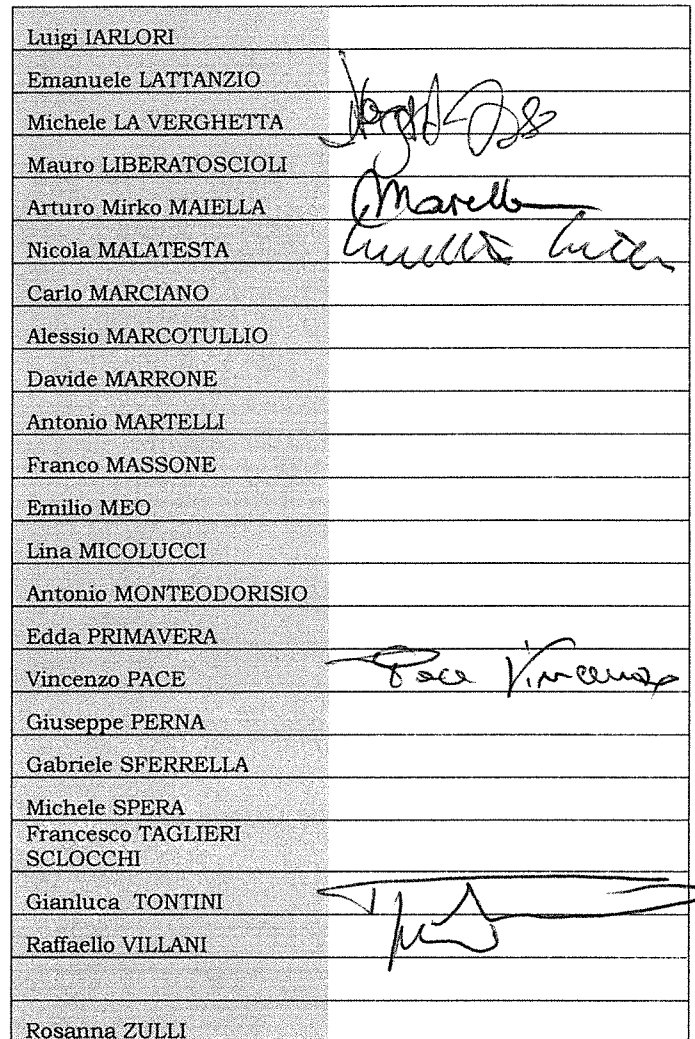 Luigi IARLORI
Emanuele LATTANZIO
Michele LA VERGHETTA
Mauro LIBERATOSCIOLI
Arturo Mirko MAIELLA
Nicola MALATESTA
Carlo MARCIANO
Alessio MARCOTULLIO
Davide MARRONE
Antonio MARTELLI
Franco MASSONE
Emilio MEO
Lina MICOLUCCI
Antonio MONTEODORISIO
Edda PRIMAVERA
Vincenzo PACE Pace Vincenzo
Giuseppe PERNA
Gabriele SFERRELLA
Michele SPERA
Francesco TAGLIERI
SCLOCCHI
Gianluca TONTINI
Raffaello VILLANI
Rosanna ZULLI